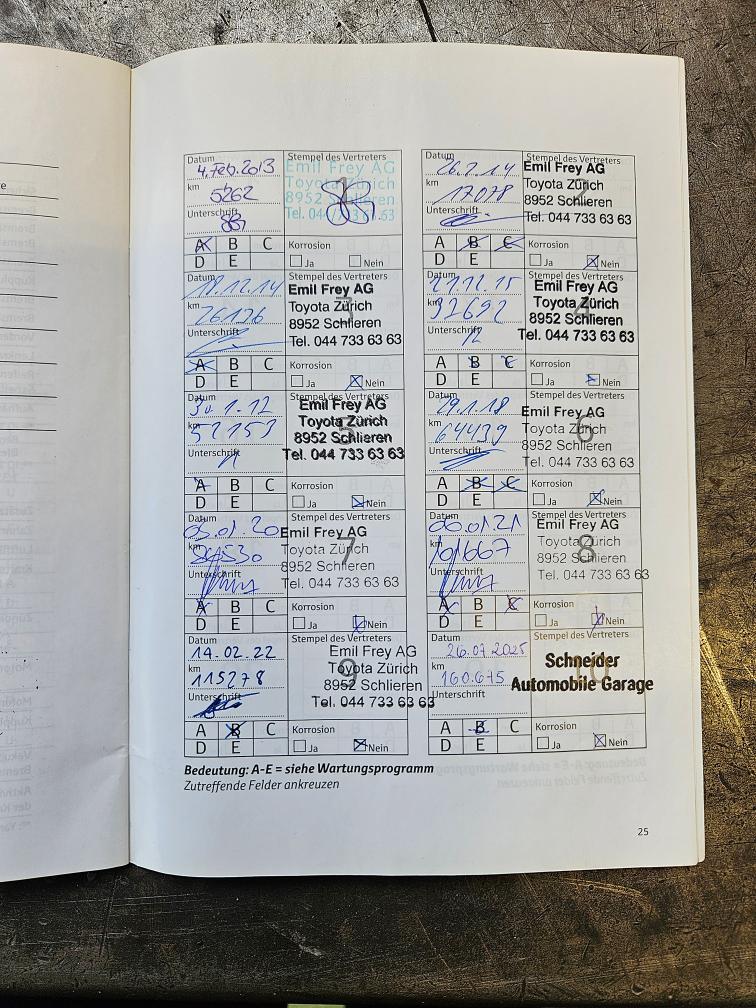 Datum
4. Feb. 2013
km
5262
Unterschrift
Stempel des Vertreters
Emil Frey AG
Toyota Zürich
8952 Schlieren
Tel. 044 733 61 63
1
A B C
D E
Korrosion
Ja Nein
Datum
26.2.14
km
17078
Unterschrift
Stempel des Vertreters
Emil Frey AG
Toyota Zürich
8952 Schlieren
Tel. 044 733 63 63
2
A B C
D E
Korrosion
Ja Nein
Datum
18.12.14
km
26126
Unterschrift
Stempel des Vertreters
Emil Frey AG
Toyota Zürich
8952 Schlieren
Tel. 044 733 63 63
3
A B C
D E
Korrosion
Ja Nein
Datum
km
37692
Unterschrift
Stempel des Vertreters
Emil Frey AG
Toyota Zürich
8952 Schlieren
Tel. 044 733 63 63
4
A B C
D E
Korrosion
Ja Nein
Datum
km
52153
Unterschrift
Stempel des Vertreters
Emil Frey AG
Toyota Zürich
8952 Schlieren
Tel. 044 733 63 63
5
A B C
D E
Korrosion
Ja Nein
Datum
29.1.18
km
64439
Unterschrift
Stempel des Vertreters
Emil Frey AG
Toyota Zürich
8952 Schlieren
Tel. 044 733 63 63
6
A B C
D E
Korrosion
Ja Nein
Datum
03.01.20
km
Unterschrift
Stempel des Vertreters
Emil Frey AG
Toyota Zürich
8952 Schlieren
Tel. 044 733 63 63
7
A B C
D E
Korrosion
Ja Nein
Datum
06.01.21
km
101667
Unterschrift
Stempel des Vertreters
Emil Frey AG
Toyota Zürich
8952 Schlieren
Tel. 044 733 63 63
8
A B C
D E
Korrosion
Ja Nein
Datum
14.02.22
km
115278
Unterschrift
Stempel des Vertreters
Emil Frey AG
Toyota Zürich
8952 Schlieren
Tel. 044 733 63 63
9
A B C
D E
Korrosion
Ja Nein
Datum
26.07.2025
km
160.675
Unterschrift
Stempel des Vertreters
Schneider
Automobile Garage
10
A B C
D E
Korrosion
Ja Nein
Bedeutung: A-E = siehe Wartungsprogramm
Zutreffende Felder ankreuzen
25